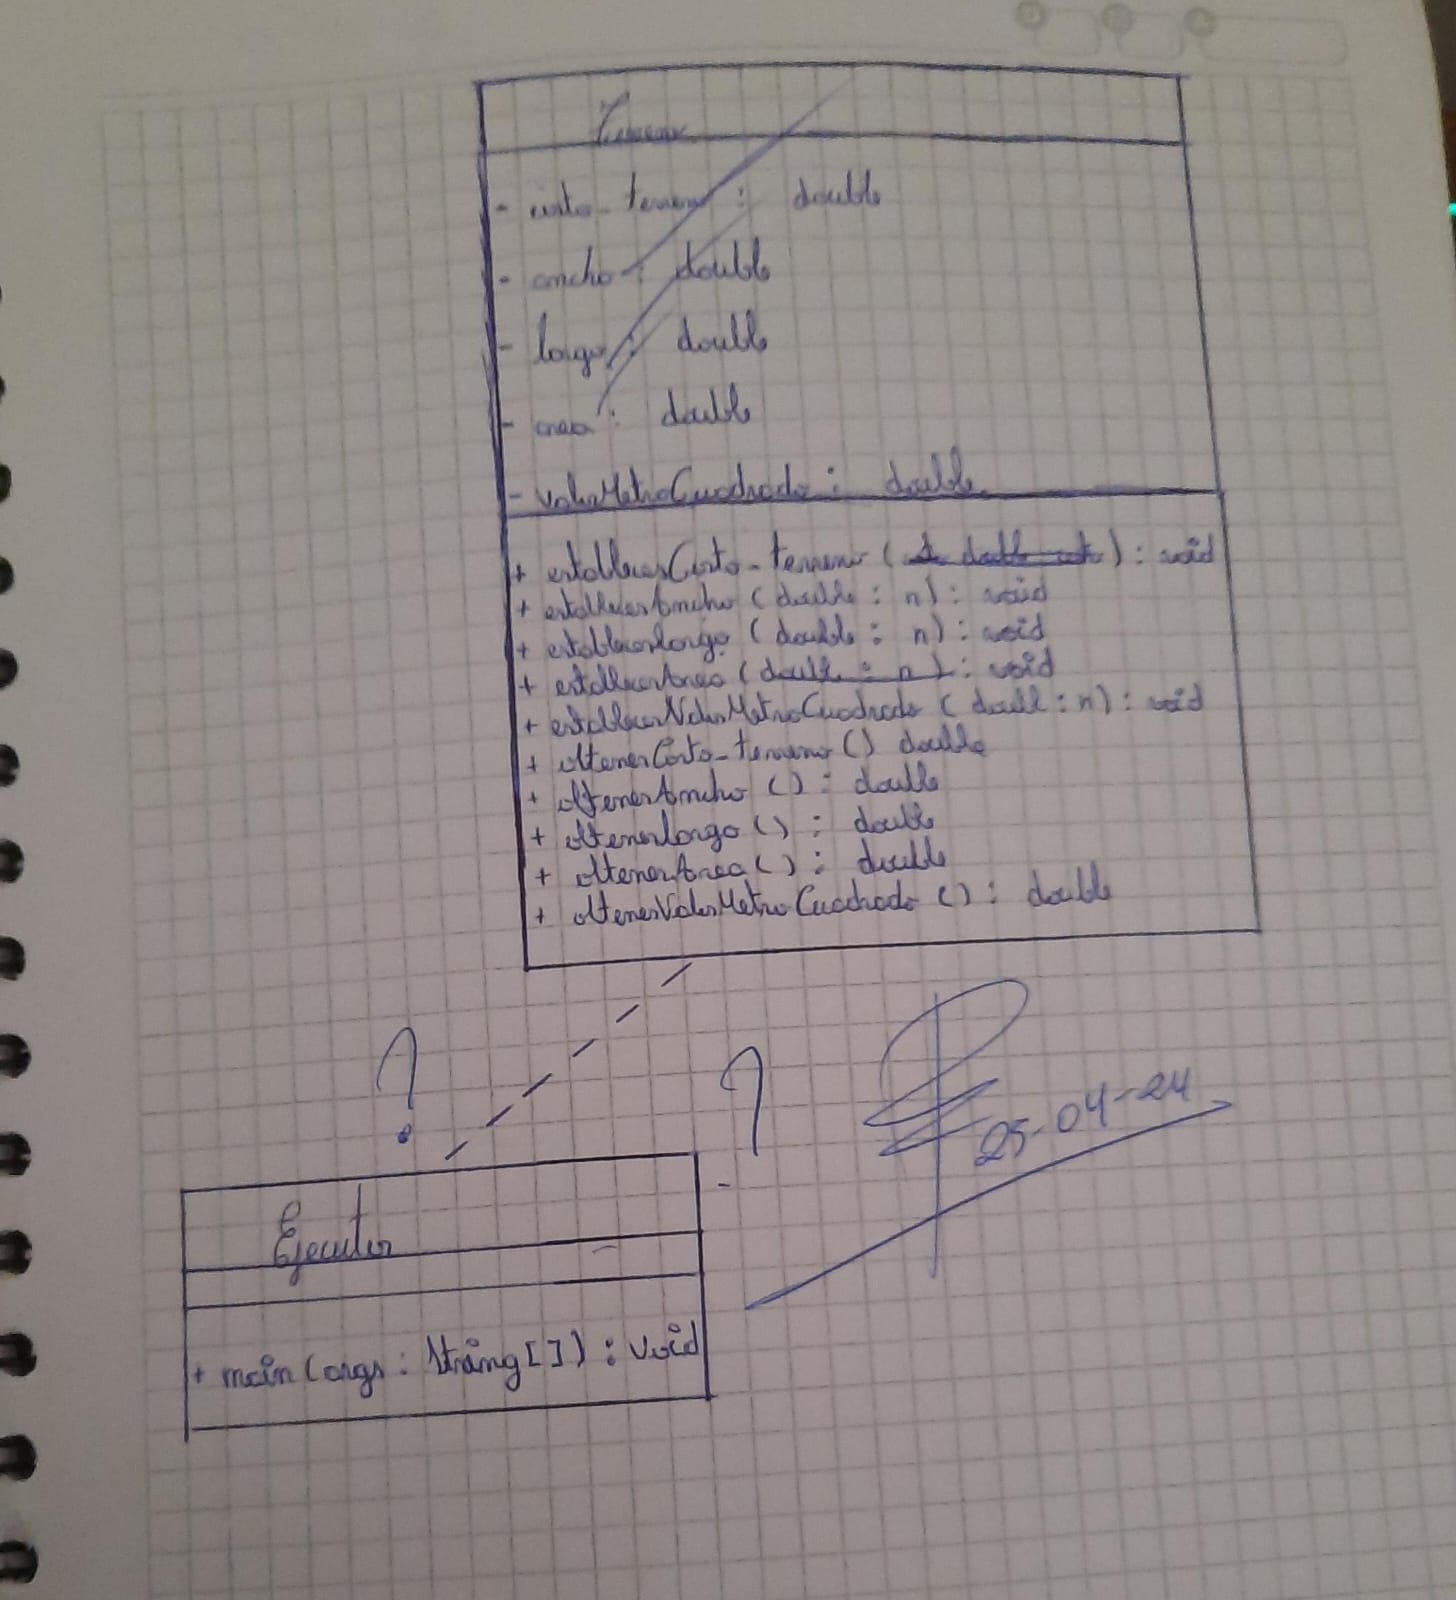 Terreno
- costo_terreno : double
- ancho : double
- largo : double
- area : double
- valorMetroCuadrado : double
+ establecerCosto_terreno ( ) : void
+ establecerAncho (double : n) : void
+ establecerLargo (double : n) : void
+ establecerArea (double : n) : void
+ establecerValorMetroCuadrado (doubl : n) : void
+ obtenerCosto_terreno () double
+ obtenerAncho () : double
+ obtenerLargo () : double
+ obtenerArea () : double
+ obtenerValorMetroCuadrado () : double
? ?
25-04-24
Ejecutor
+ main (args : String []) : void